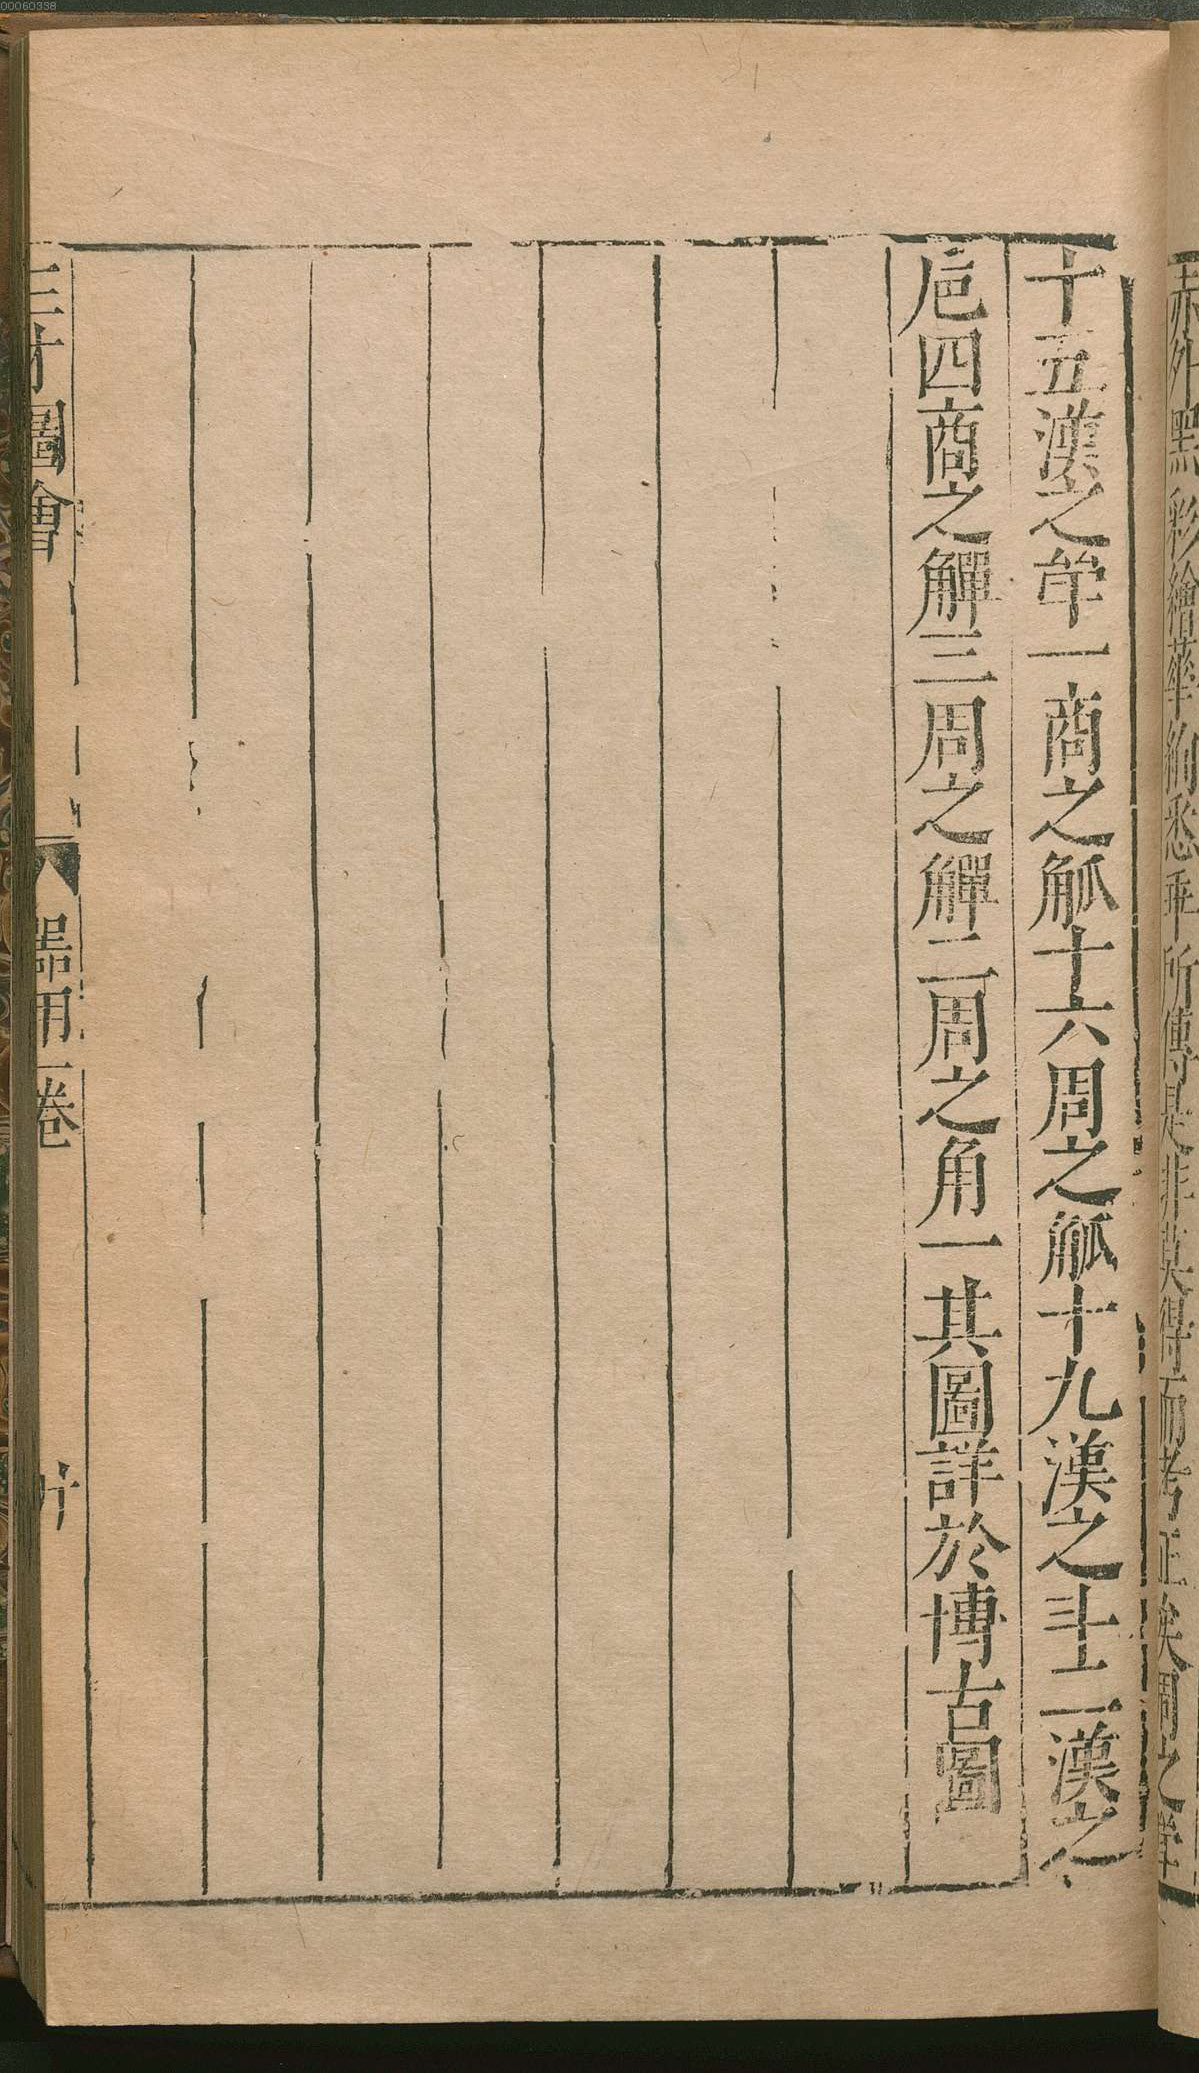 赤外黑彩繪華絢悉乖所傳是非莫得而考正矣周之斝
十五漢之斝一商之觚十六周之觚十九漢之斗二漢之
巵四商之觶三周之觶二周之角一其圖詳於博古圖
三才圖會
器用一卷
廾
00060338